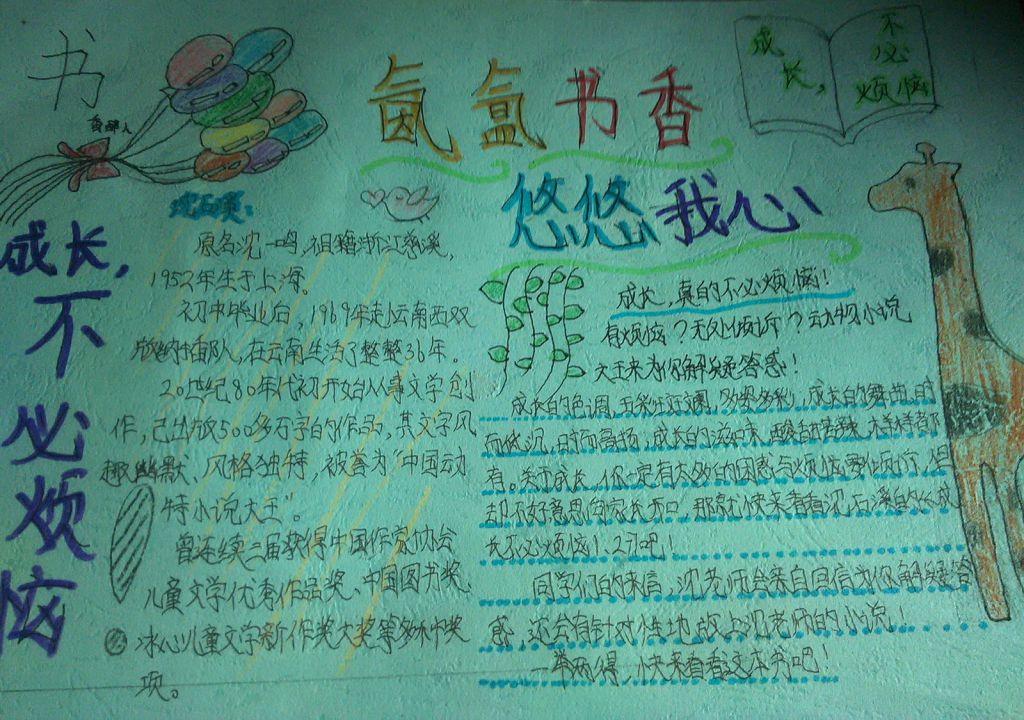 书
香醉人
氤氲书香
悠悠我心
成长，
不必
烦恼
成长，不必烦恼
沈石溪：
原名沈一鸣，祖籍浙江慈溪，
1952年生于上海。
初中毕业后，1969年赴云南西双
版纳插队，在云南生活了整整36年。
20世纪80年代初开始从事文学创
作，已出版500多万字的作品，其文字风
趣幽默、风格独特，被誉为“中国动
特小说大王”。
曾连续三届获得中国作家协会
儿童文学优秀作品奖、中国图书奖、
冰心儿童文学新作奖大奖等多种奖
项。
成长，真的不必烦恼！
有烦恼？无处倾诉？动物小说
大王来为你解疑答惑！
成长的色调，五彩斑斓，多姿多彩，成长的舞曲，时
而低沉，时而高扬，成长的滋味，酸甜苦辣，样样都
有。关于成长，你一定有太多的困惑与烦恼要倾诉，但
却不好意思向家长开口，那就快来看看沈石溪的《成
长不必烦恼1、2》吧！
同学们的来信，沈老师会亲自回信为你解疑答
惑，还会有针对性地放上沈老师的小说！
一举两得，快来看看这本书吧！